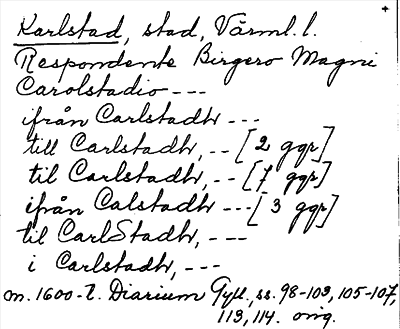 Karlstad, stad, Värml. l.
Respondente Birgero Magni
Carolstadio ---
ifrån Carlstadh ---
till Carlstadh, -- [2 ggr]
til Carlstadh, -- [7 ggr]
ifrån Calstadh --- [3 ggr]
til CarlStadh, ---
i Carlstadh, ---
m. 1600-t. Diarium Gyll., ss. 98-103, 105-107,
113, 114. orig.